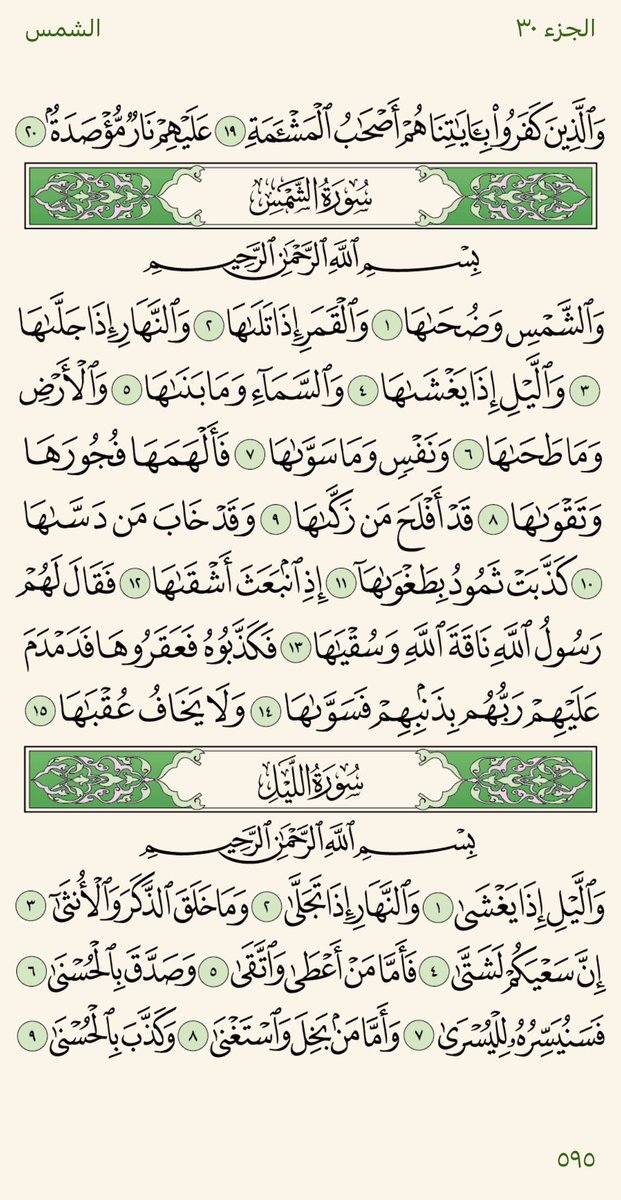 الجزء ٣٠
الشمس
وَٱلَّذِينَ كَفَرُوا۟ بِـَٔايَـٰتِنَا هُمْ أَصْحَـٰبُ ٱلْمَشْـَٔمَةِ ١٩ عَلَيْهِمْ نَارٌ مُّؤْصَدَةٌۢ ٢٠
سُورَةُ الشَّمْسِ
بِسْمِ ٱللَّهِ ٱلرَّحْمَـٰنِ ٱلرَّحِيمِ
وَٱلشَّمْسِ وَضُحَىٰهَا ١ وَٱلْقَمَرِ إِذَا تَلَىٰهَا ٢ وَٱلنَّهَارِ إِذَا جَلَّىٰهَا
٣ وَٱلَّيْلِ إِذَا يَغْشَىٰهَا ٤ وَٱلسَّمَآءِ وَمَا بَنَىٰهَا ٥ وَٱلْأَرْضِ
وَمَا طَحَىٰهَا ٦ وَنَفْسٍ وَمَا سَوَّىٰهَا ٧ فَأَلْهَمَهَا فُجُورَهَا
وَتَقْوَىٰهَا ٨ قَدْ أَفْلَحَ مَن زَكَّىٰهَا ٩ وَقَدْ خَابَ مَن دَسَّىٰهَا
١٠ كَذَّبَتْ ثَمُودُ بِطَغْوَىٰهَآ ١١ إِذِ ٱنۢبَعَثَ أَشْقَىٰهَا ١٢ فَقَالَ لَهُمْ
رَسُولُ ٱللَّهِ نَاقَةَ ٱللَّهِ وَسُقْيَـٰهَا ١٣ فَكَذَّبُوهُ فَعَقَرُوهَا فَدَمْدَمَ
عَلَيْهِمْ رَبُّهُم بِذَنۢبِهِمْ فَسَوَّىٰهَا ١٤ وَلَا يَخَافُ عُقْبَـٰهَا ١٥
سُورَةُ اللَّيْلِ
بِسْمِ ٱللَّهِ ٱلرَّحْمَـٰنِ ٱلرَّحِيمِ
وَٱلَّيْلِ إِذَا يَغْشَىٰ ١ وَٱلنَّهَارِ إِذَا تَجَلَّىٰ ٢ وَمَا خَلَقَ ٱلذَّكَرَ وَٱلْأُنثَىٰٓ ٣
إِنَّ سَعْيَكُمْ لَشَتَّىٰ ٤ فَأَمَّا مَنْ أَعْطَىٰ وَٱتَّقَىٰ ٥ وَصَدَّقَ بِٱلْحُسْنَىٰ ٦
فَسَنُيَسِّرُهُۥ لِلْيُسْرَىٰ ٧ وَأَمَّا مَنۢ بَخِلَ وَٱسْتَغْنَىٰ ٨ وَكَذَّبَ بِٱلْحُسْنَىٰ ٩
٥٩٥